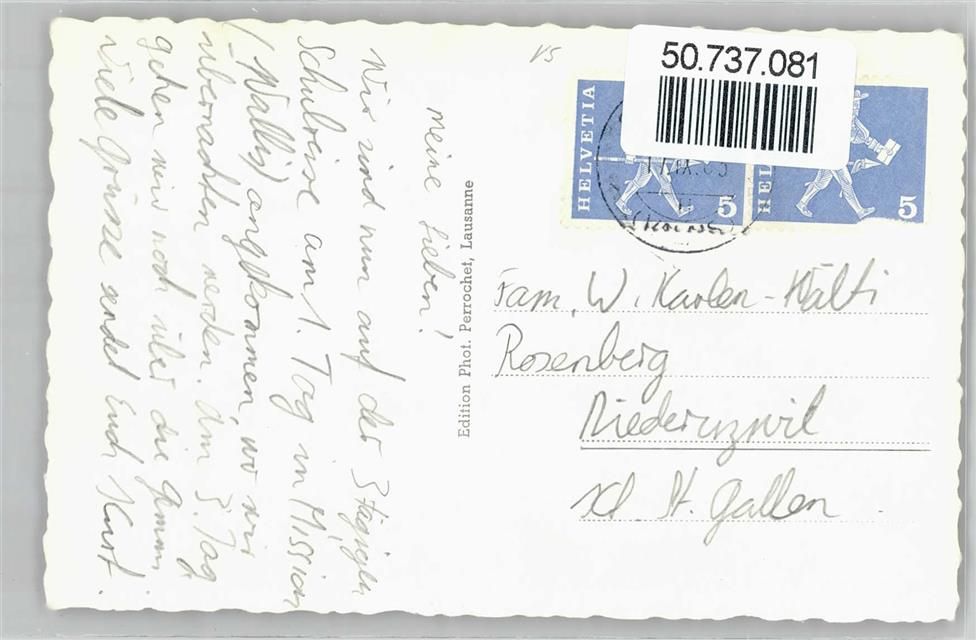 VS
50.737.081
HELVETIA
5
HEL
5
Meine Lieben!
Wir sind nun auf der 3 tägigen
Schulreise am 1. Tag in Mission
(Wallis) angekommen, wo wir
übernachten werden. Am 3. Tag
gehen wir noch über die Gemmi.
Viele Grüsse sendet Euch Kurt.
Edition Phot. Perrochet, Lausanne
Fam. W. Karlen-Wälti
Rosenberg
Niederuzwil
Kt St. Gallen